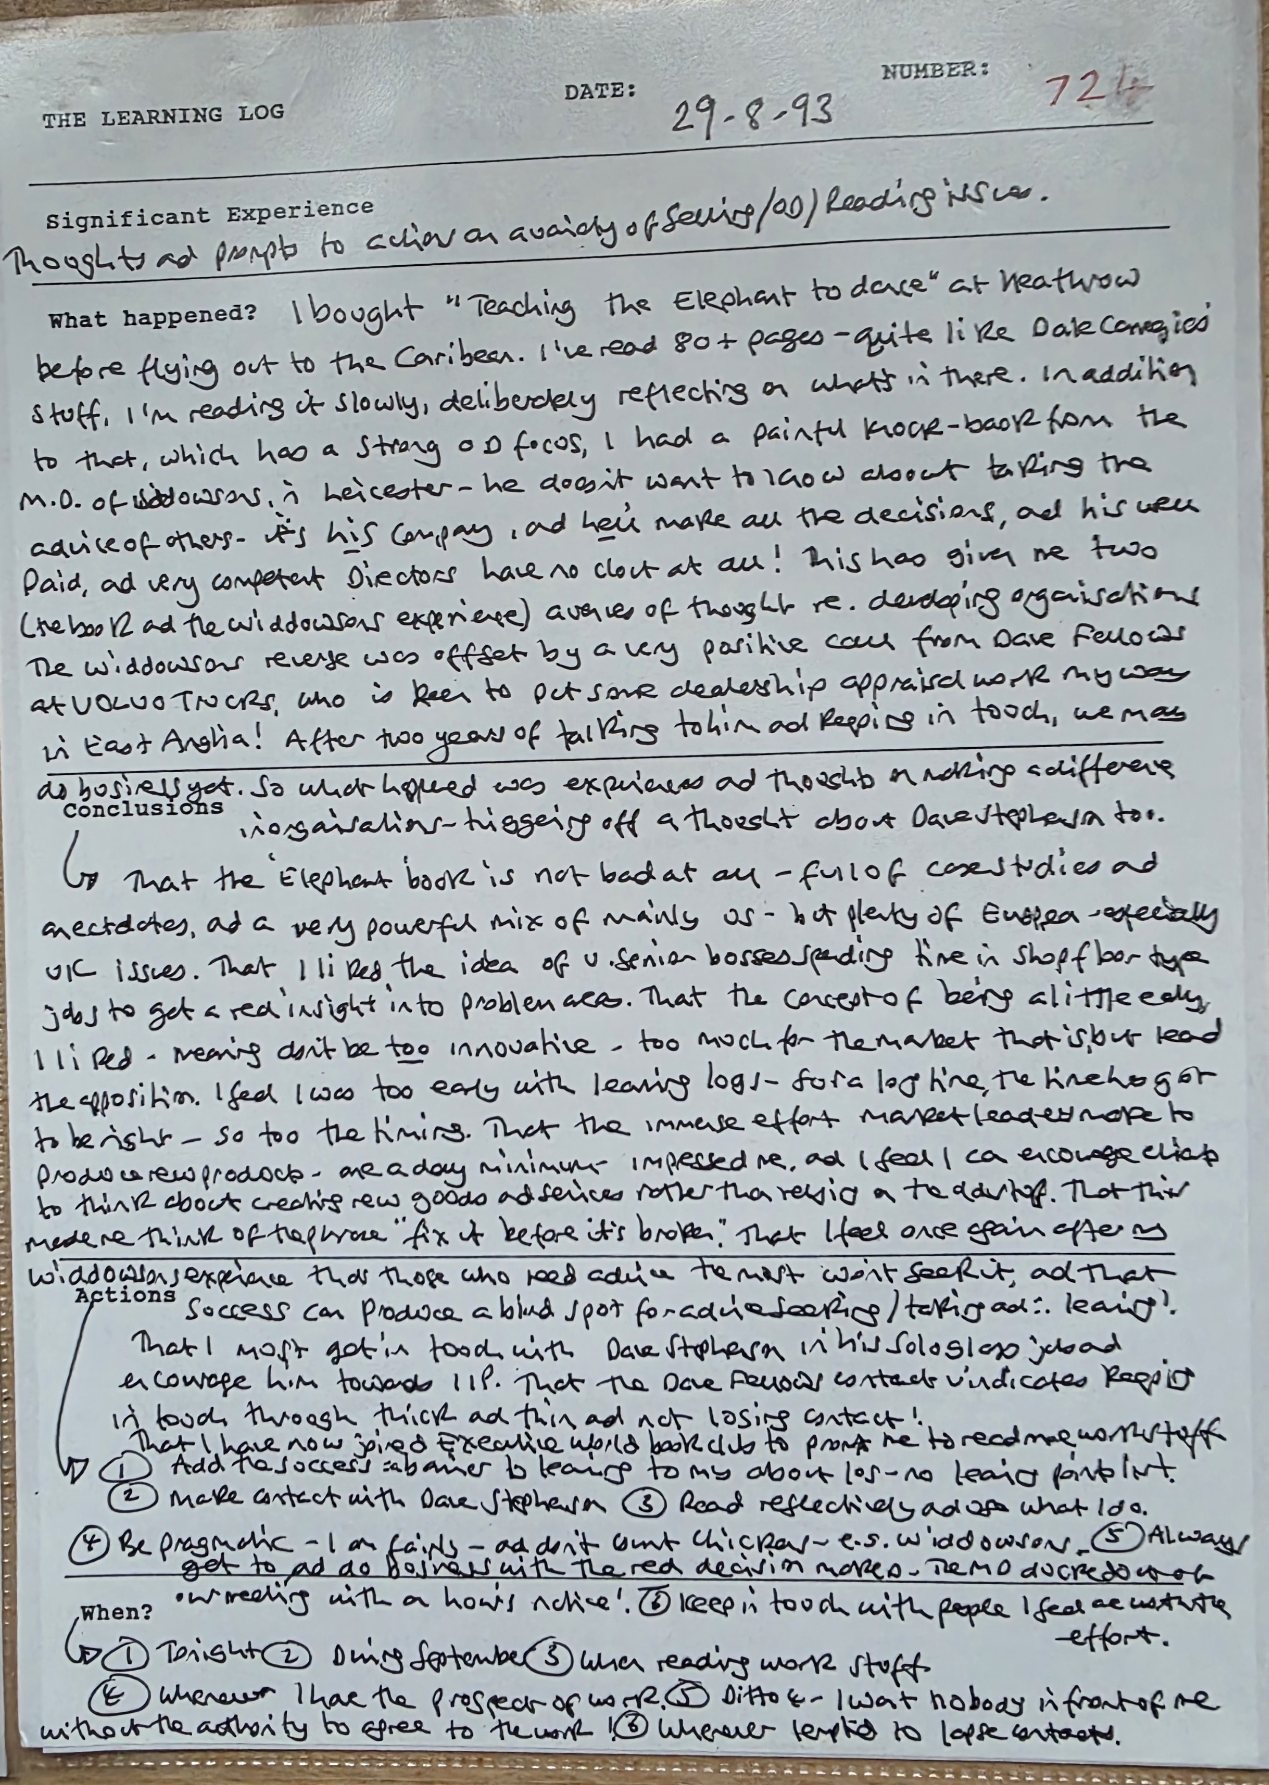 THE LEARNING LOG DATE: 29-8-93 NUMBER: 724
Significant Experience
Thoughts ad prompts to action on a variety of Selling/OD/Reading issues.
What happened? I bought "Teaching the Elephant to dance" at Heathrow
before flying out to the Caribean. I've read 80+ pages - quite like Dale Carnegies'
stuff, I'm reading it slowly, deliberately reflecting on what's in there. In addition
to that, which has a strong OD focus, I had a painful knock-back from the
M.D. of Widdowsons, in Leicester - he doesn't want to know about taking the
advice of others - it's his company, ad he'll make all the decisions, and his well
Paid, ad very competent Directors have no clout at all! This has given me two
(the book ad the widdowsons experience) avenues of thought re. developing organisations
The widdowsons reverse was offset by a very positive call from Dave Fellows
at VOLVO TRUCKS, who is keen to put some dealership appraisal work my way
in East Anglia! After two years of talking to him ad keeping in touch, we may
do business yet. So what happened was experiences ad thoughts on making a difference
Conclusions in organisations - triggering off a thought about Dave Stephenson too.
That the 'Elephant' book is not bad at all - full of case studies ad
anecdotes, ad a very powerful mix of mainly US - but plenty of European - especially
UK issues. That I liked the idea of v. senior bosses spending time in shopfloor type
jobs to get a real 'insight' into problem areas. That the concept of being a little early,
I liked - meaning don't be too innovative - too much for the market that is, but lead
the opposition. I feel I was too early with learning logs - for a log line, the line has got
to be right - so too the timing. That the immense effort market leaders make to
produce new products - one a day minimum - impressed me, ad I feel I can encourage clients
to think about creating new goods ad services rather than relying on the old stuff. That this
made me think of the phrase "fix it before it's broken." That I feel once again after my
widdowsons experience that those who need advice the most won't seek it, ad that
Actions success can produce a blind spot for advice seeking/taking ad ∴ learning!.
That I must get in touch with Dave Stephenson in his job ad
encourage him towards IIP. That the Dave Fellows contact vindicates keeping
in touch through thick ad thin, ad not losing contact!
That I have now joined Executive World book club to prompt me to read more work stuff
① Add the success = a barrier to learning to my about log - no learning points list.
② Make contact with Dave Stephenson ③ Read reflectively ad use what I do.
④ Be pragmatic - I am fairly - ad don't count chickens - e.g. widdowsons. ⑤ Always
get to ad do business with the real decision maker - The MD ducked out of
When? our meeting with an hour's notice! ⑥ Keep in touch with people I feel are worth the
effort.
① Tonight ② During September ③ When reading work stuff
④ Whenever I have the prospect of work. ⑤ Ditto 4 - I want nobody in front of me
without the authority to agree to the work! ⑥ Whenever tempted to lapse contacts.